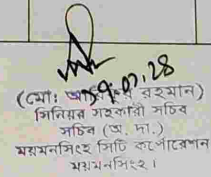 ১৭.০১.২৪
(মোঃ রহমান)
সিনিয়র সহকারী সচিব
সচিব (অ. দা.)
ময়মনসিংহ সিটি কর্পোরেশন
ময়মনসিংহ।